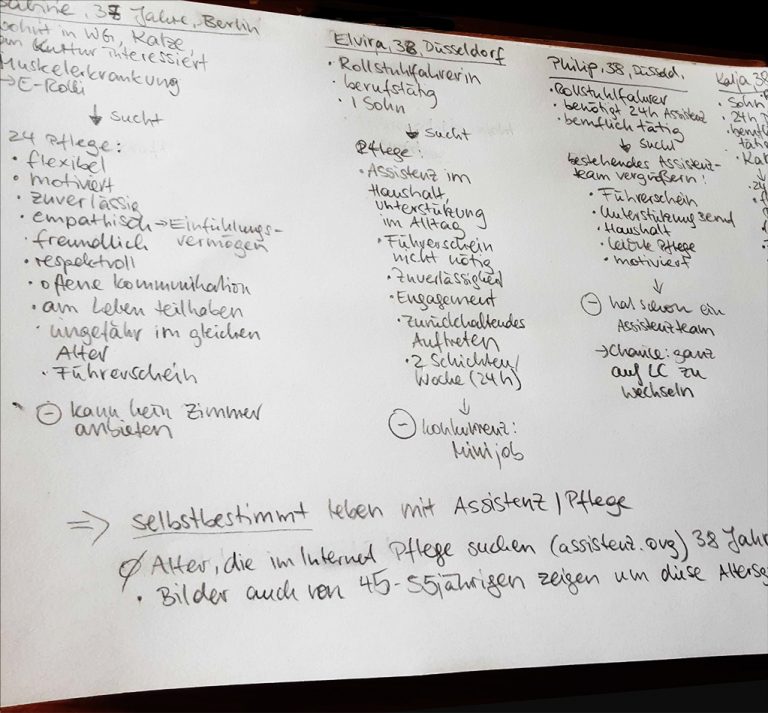 Sabine, 38 Jahre, Berlin
wohnt in WG, Katze,
an Kultur interessiert
Muskelerkrankung
→ E-Rolli
↓ sucht
24 Pflege:
• flexibel
• motiviert
• zuverlässig
• empathisch → Einfühlungs-
vermögen
• freundlich
• respektvoll
• offene Kommunikation
• am Leben teilhaben
• ungefähr im gleichen
Alter
• Führerschein
⊖ kann kein Zimmer
anbieten
Elvira, 38, Düsseldorf
• Rollstuhlfahrerin
• berufstätig
• 1 Sohn
↓ sucht
Pflege:
• Assistenz im
Haushalt,
unterstützung
im Alltag
• Führerschein
nicht nötig
• Zuverlässigkeit
• Engagement
• zurückhaltendes
Auftreten
• 2 Schichten/
Woche (24h)
↓
⊖ konkurrenz:
Minijob
Philip, 38, Düsseld.
• Rollstuhlfahrer
• benötigt 24h Assistenz
• beruflich tätig
↓ sucht
bestehendes Assistenz-
team vergrößern:
• Führerschein
• Unterstützung
• Haushalt
• leichte Pflege
• motiviert
↓
⊖ hat schon ein
Assistenzteam
→ Chance: ganz
auf LC zu
wechseln
Katja, 38
• Sohn
• 24h
⇒ selbstbestimmt leben mit Assistenz / Pflege
Ø Alter, die im Internet Pflege suchen (assistenz.org) 38 Jahr
• Bilder auch von 45-55jährigen zeigen um diese Altersg